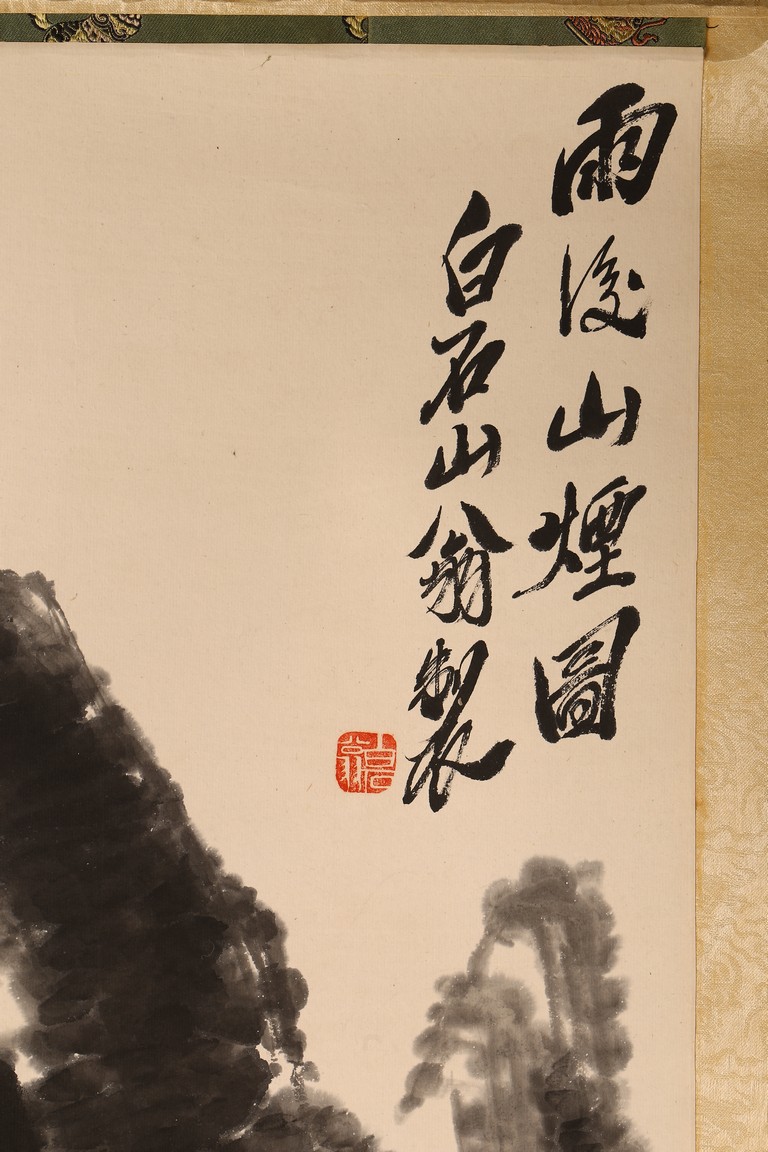 雨後山煙圖
白石山翁製